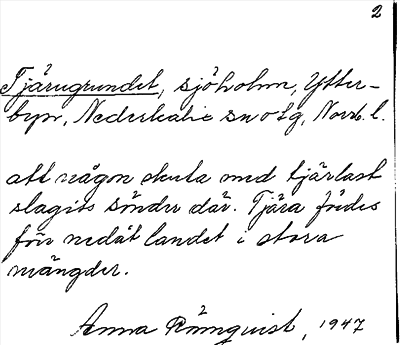 2
Tjärugrundet, sjöholm, Ytter-
byn, Nederkalix sn o tg, Norrb. l.
att någon skuta med tjärlast
slagits sönder där. Tjära fördes
förr nedåt landet i stora
mängder.
Anna Rönnqvist, 1947